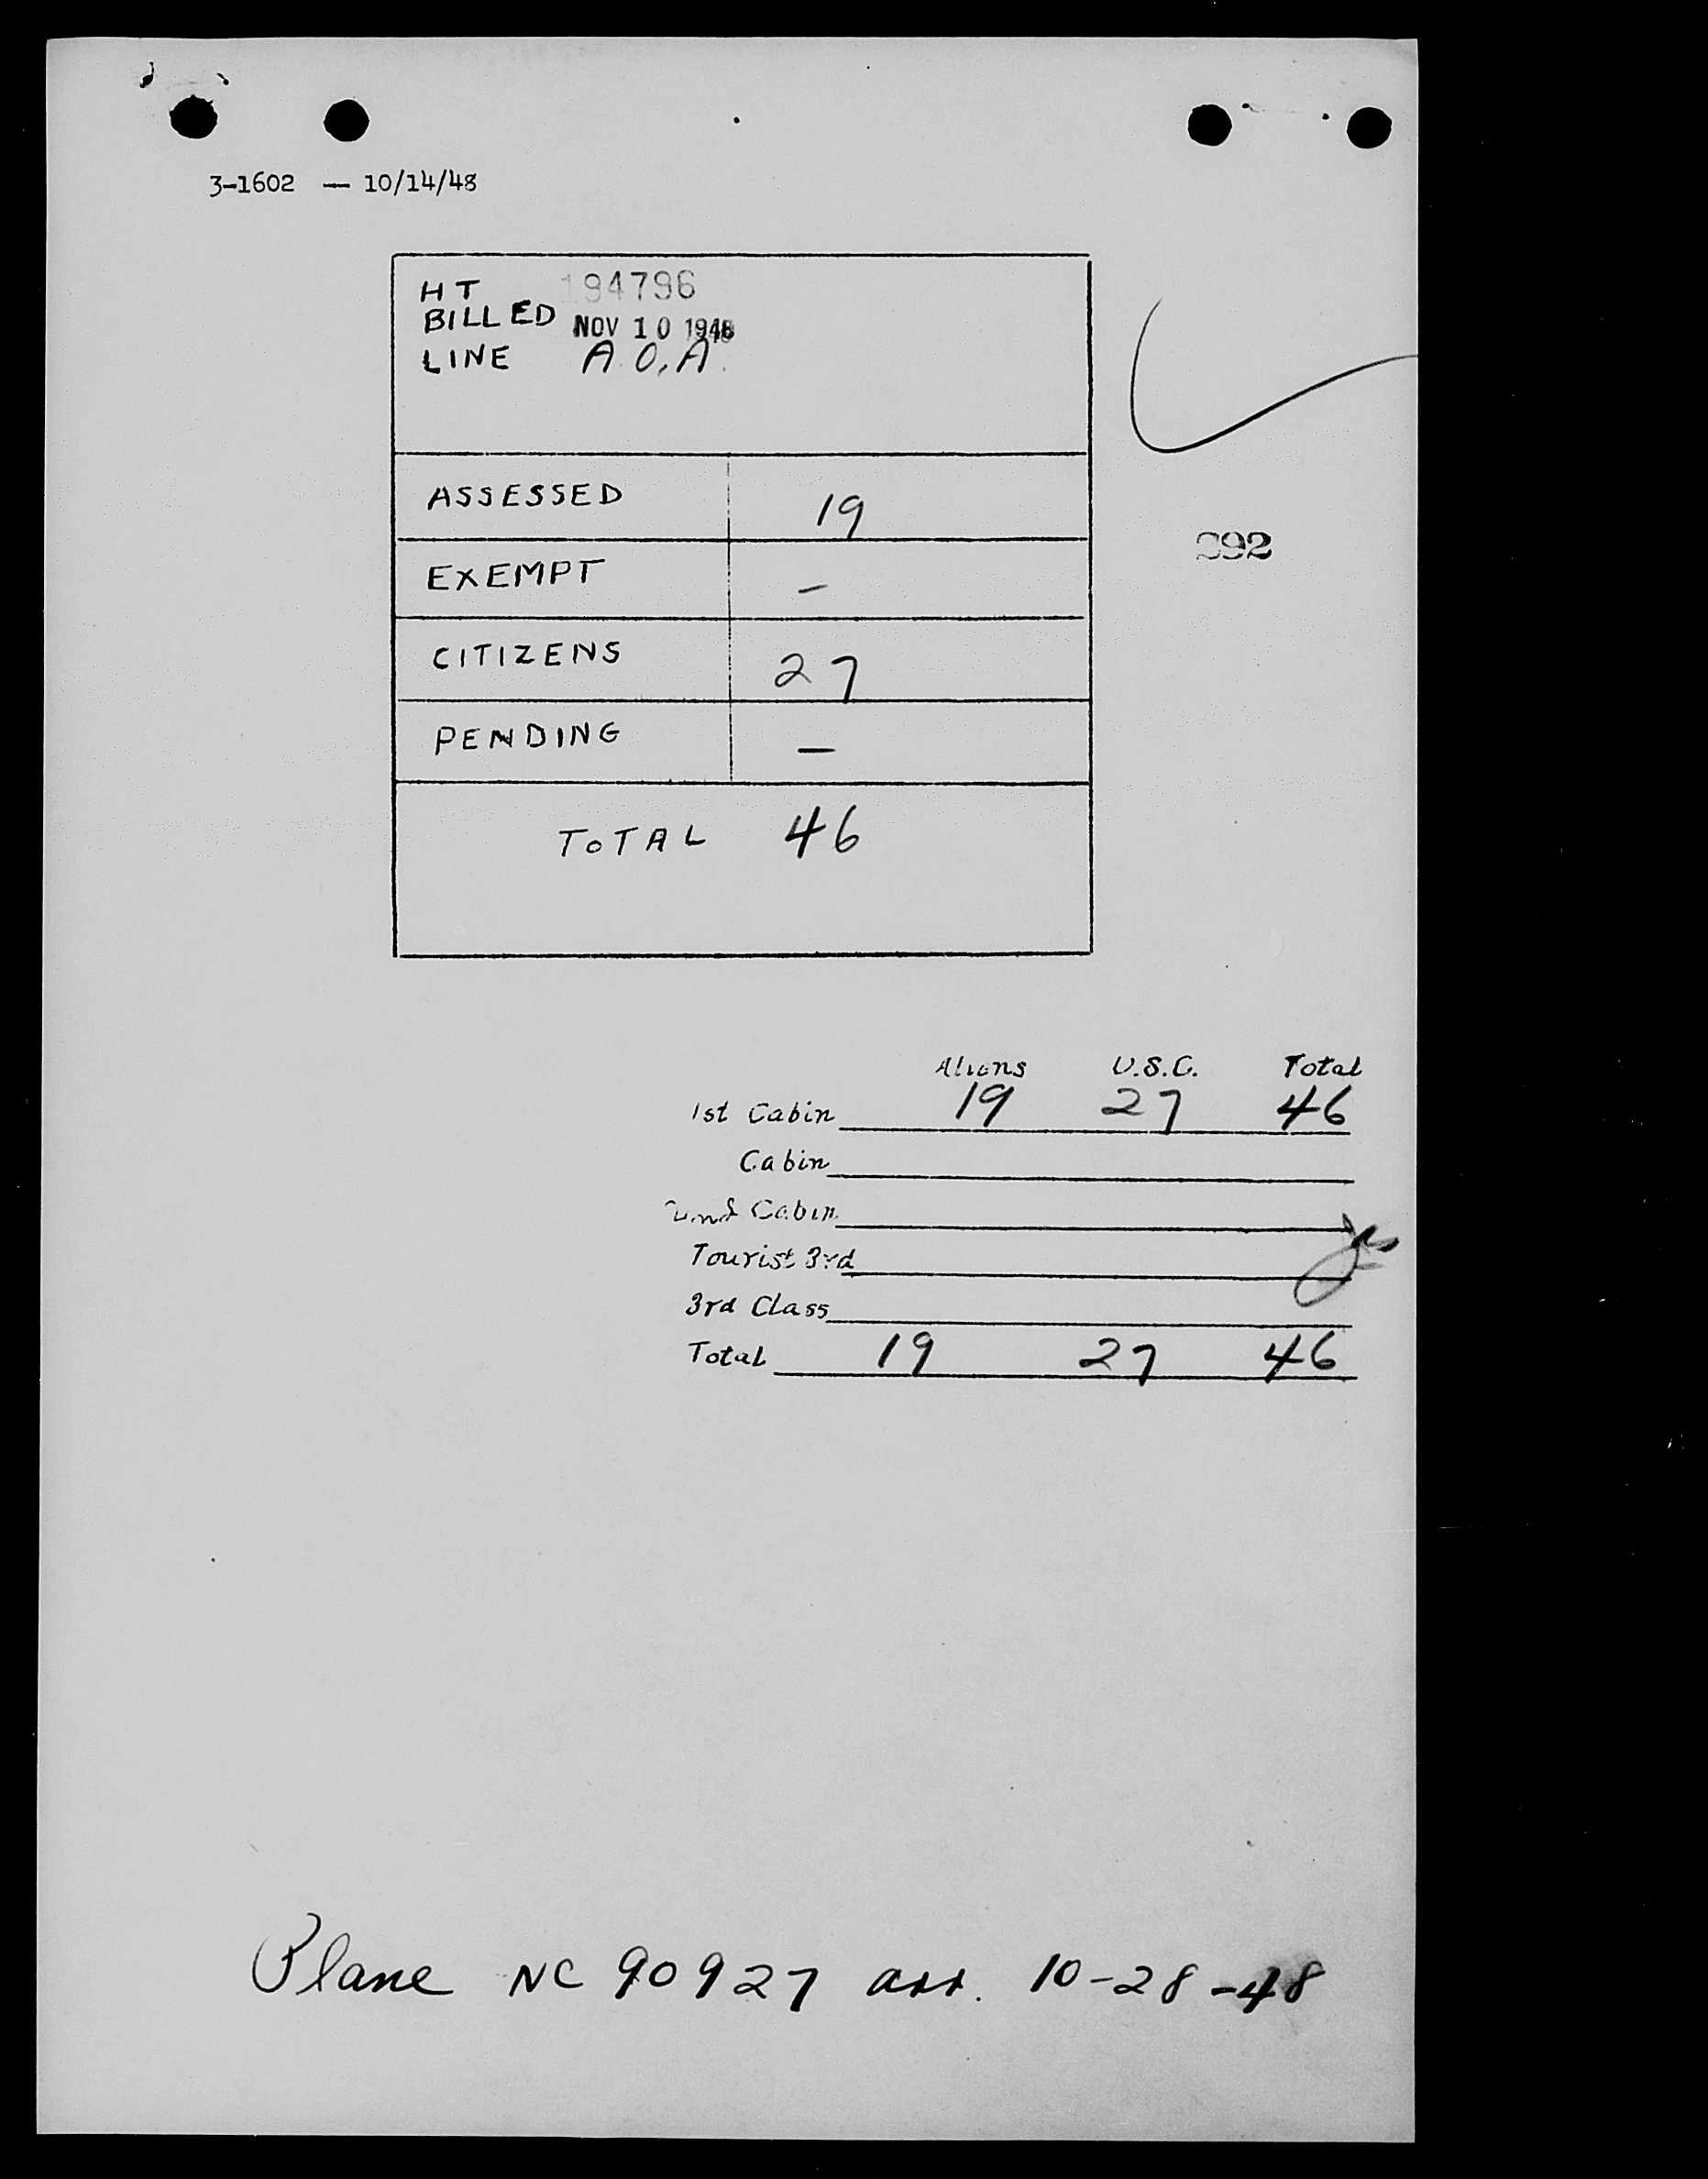 3-1602 — 10/14/48
HT 194796
BILLED NOV 10 1948
LINE A.O.A.
ASSESSED 19
EXEMPT –
CITIZENS 27
PENDING —
TOTAL 46
Aliens U.S.C. Total
1st Cabin 19 27 46
Cabin
2nd Cabin
Tourist 3rd
3rd Class
Total 19 27 46
Plane NC 90927 arr. 10-28-48